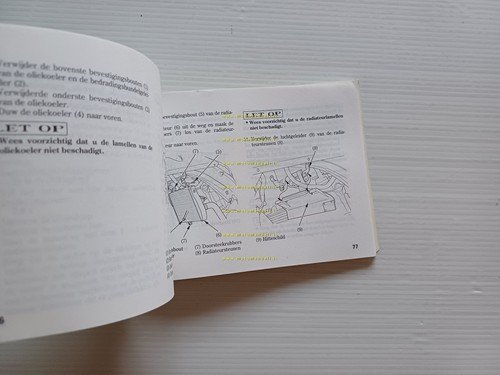 Verwijder de bovenste bevestigingsbout (1)
van de oliekoeler en de bedradingsbundelgelei
der (2).
Verwijderde onderste bevestigingsbouten (3)
van de oliekoeler.
Duw de oliekoeler (4) naar voren.
LET OP
Wees voorzichtig dat u de lamellen van de
oliekoeler niet beschadigt.
bevestigingsbout (5) van de radia-
(6) uit de weg en maak de
(7) los van de radiateur-
naar voren.
(7)
(8)
(6)
(7)
bout
(7) Doorsteekrubbers
(8) Radiateursteunen
LET OP
• Wees voorzichtig dat u de radiateurlamellen
niet beschadigt.
Verwijder de luchtgeleider (9) van de radia-
teursteunen (8).
(8)
(9)
(9) Hitteschild
77